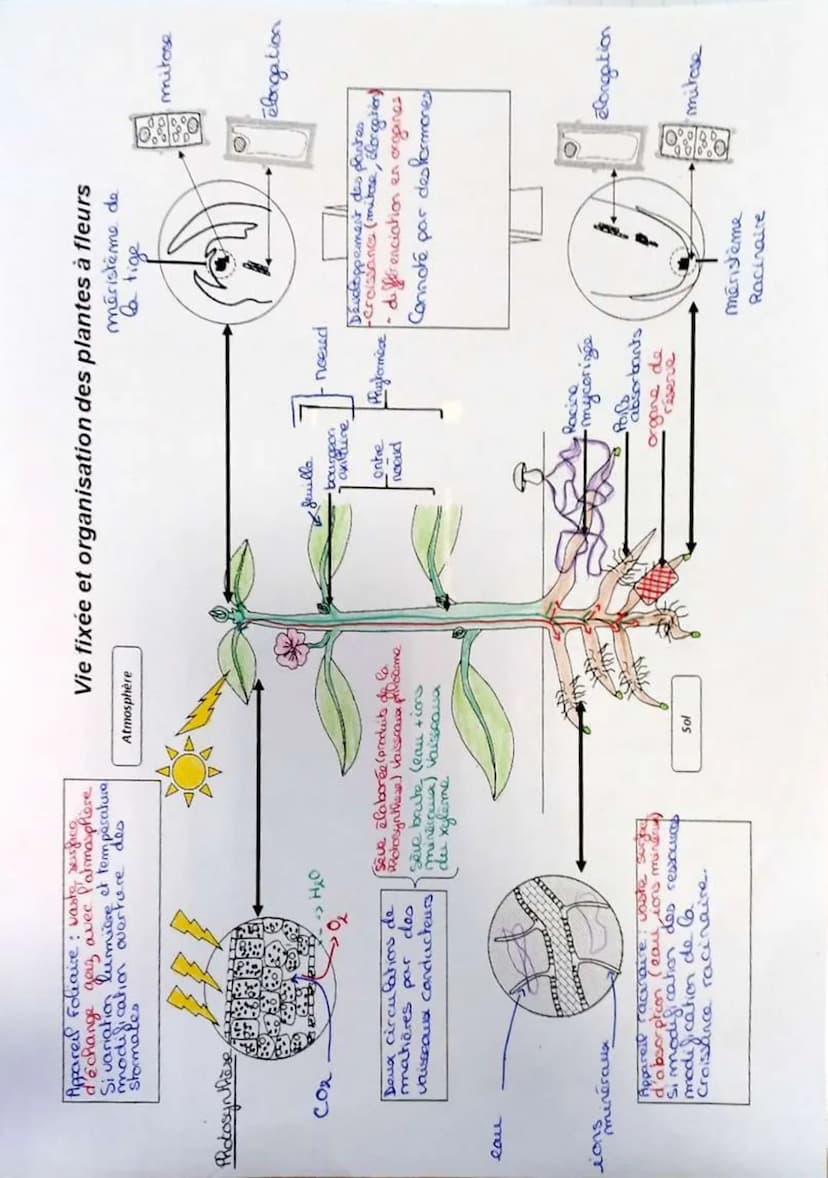 Vie fixée et organisation des plantes à fleurs
Appareil foliaire : vaste surface
d'échange gaz, avec l'atmosphère
Si variation lumière et température
modification ouverture des
stomates
Atmosphère
méristème de
la tige
mitose
élongation
Photosynthèse
CO2
H2O
O2
feuille
bourgeon
axillaire
entre
noeud
noeud
Phytomère
Développement des plantes
- Croissance (mitose, élongation)
- différenciation en organes
Connoté par des hormones
Deux circulations de
matières par des
vaisseaux conducteurs
Sève élaborée (produits de la
Photosynthèse) Vaisseaux phloème
Sève brute (eau + ions
minéraux) Vaisseaux
du xylème
eau
ions
minéraux
Appareil racinaire : vaste surface
d'absorption (eau, ions minéraux)
Si modification des ressources
modification de la
Croissance racinaire.
Sol
Racine
mycorizée
Poils
absorbants
organe de
réserve
élongation
mitose
méristème
Racinaire